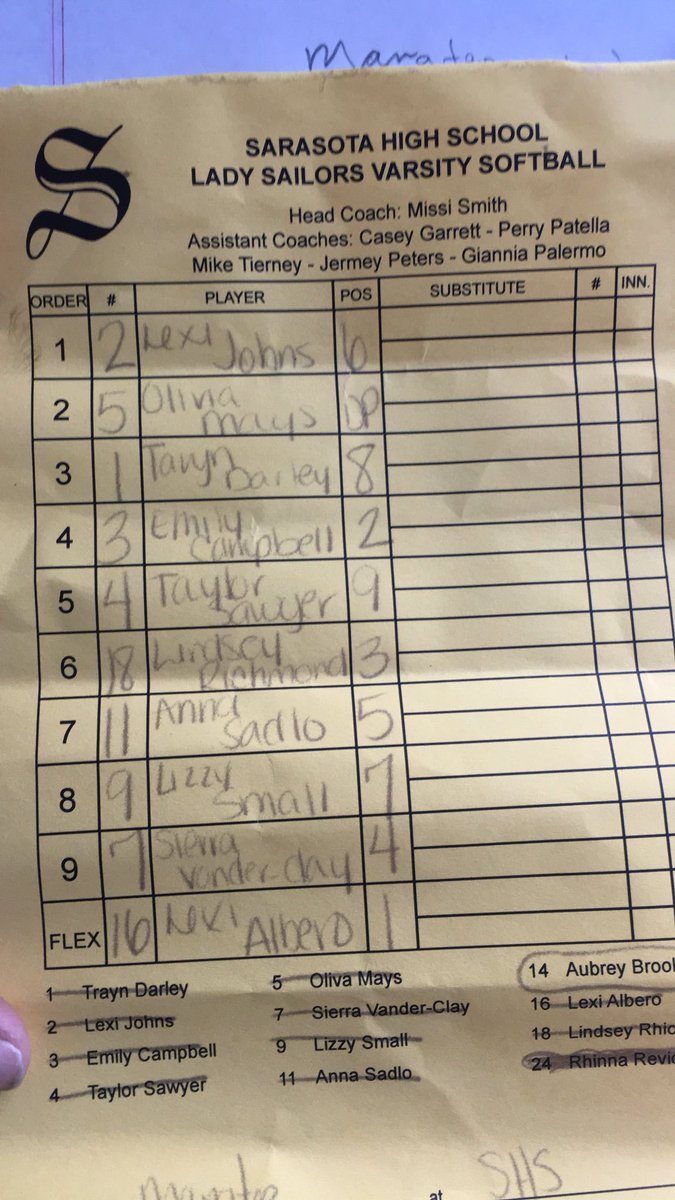 S
SARASOTA HIGH SCHOOL
LADY SAILORS VARSITY SOFTBALL
Head Coach: Missi Smith
Assistant Coaches: Casey Garrett - Perry Patella
Mike Tierney - Jermey Peters - Giannia Palermo
ORDER # PLAYER POS SUBSTITUTE # INN.
1 2 Lexi Johns 6
2 5 Olivia Mays DP
3 1 Taryn Darley 8
4 3 Emily Campbell 2
5 4 Taylor Sawyer 9
6 18 Lindsey Richmond 3
7 11 Anna Sadlo 5
8 9 Lizzy Small 7
9 7 Sierra Vander-Clay 4
FLEX 16 Lexi Albero 1
1 Trayn Darley 5 Oliva Mays 14 Aubrey Brool
2 Lexi Johns 7 Sierra Vander-Clay 16 Lexi Albero
3 Emily Campbell 9 Lizzy Small 18 Lindsey Rhic
4 Taylor Sawyer 11 Anna Sadlo 24 Rhinna Revi
at SHS